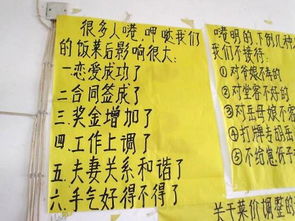 很多人喀,呷哒我们
的饭菜后影响很大:
一恋爱成功了
二合同签成了
三奖金增加了
四.工作上调了
五夫妻关系和谐了
六.手气好得不得了
喀明的下列几种
我们不接待:
①对爷娘不孝的
②对堂客不好的
③对岳母娘不
④打牌去胡岳
⑤不给崽伢子
关于菜价调整的